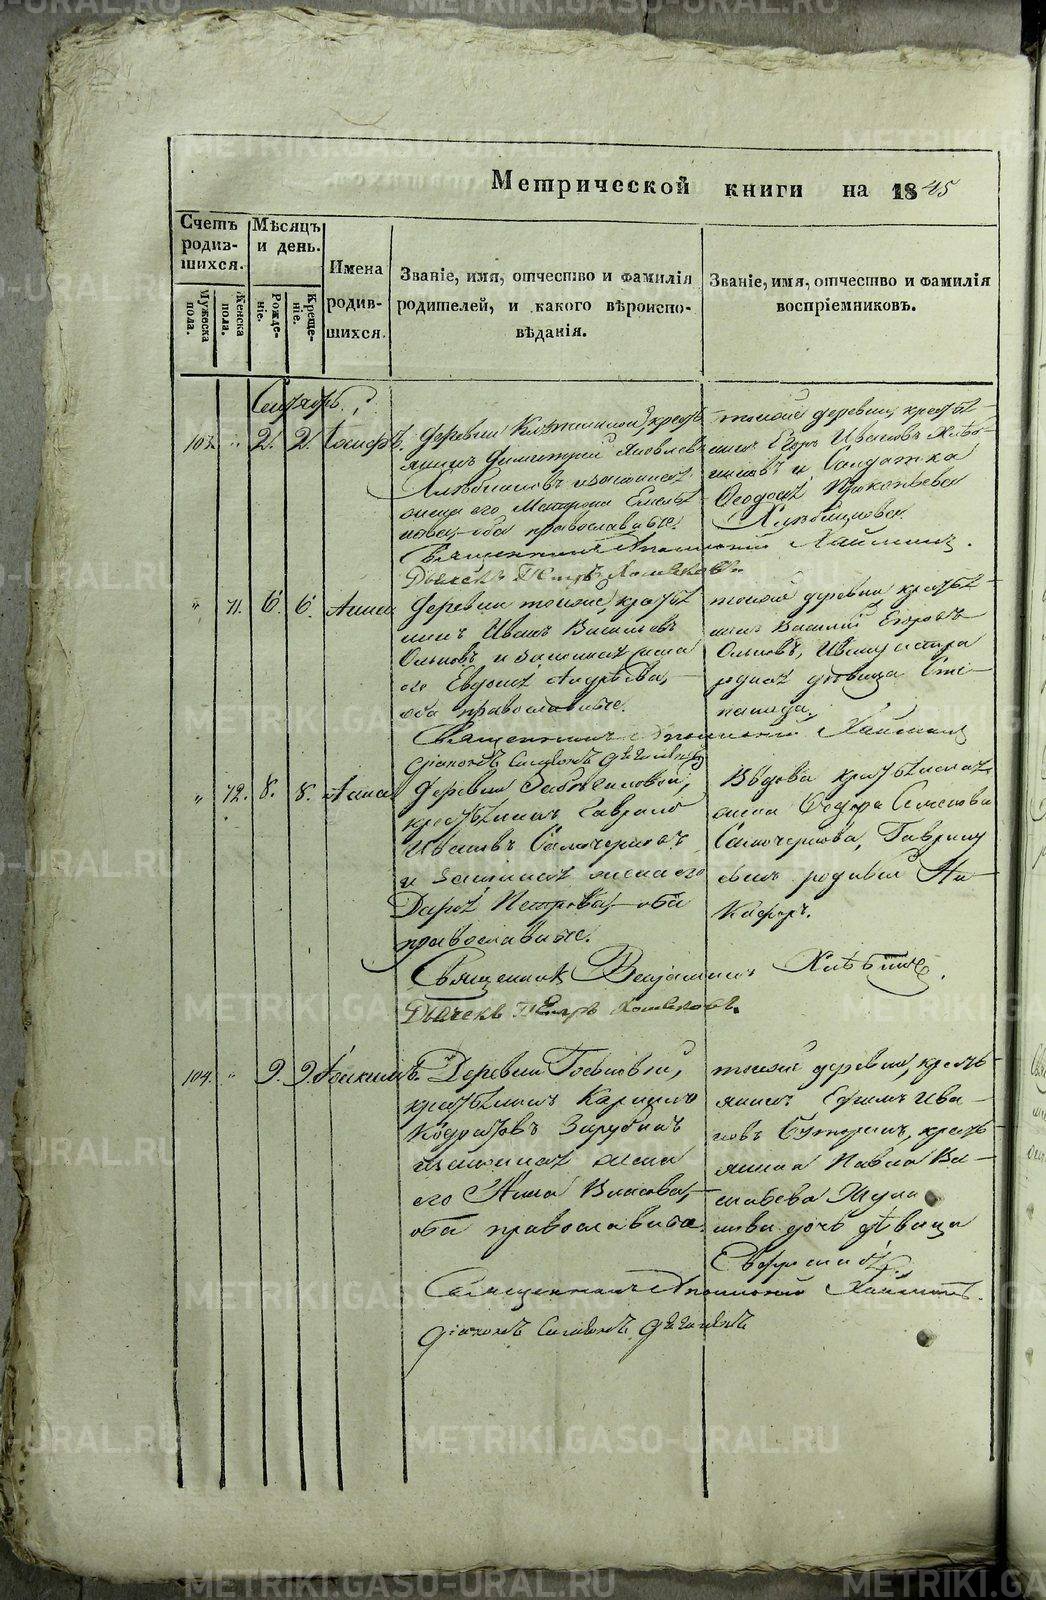 METRIKI.GASO-URAL.RU
Метрической книги на 1845
Счетъ родив-шихся.
Мужеска пола.
Женска пола.
Мѣсяцъ и день.
Рожде-ніе.
Креще-ніе.
Имена родив-шихся.
Званіе, имя, отчество и фамилія
родителей, и какого вѣроиспо-
вѣданія.
Званіе, имя, отчество и фамилія
воспріемниковъ.
Сентябрь.
2. 2. Іосифъ.
крестъ
янинъ Димитрій Яковлевъ
Хлѣбниковъ и законная
жена его Матрона
оба православные.
тойже деревни крестья
нинъ Егоръ Ивановъ Хлѣб
никовъ и Солдатка
Феодосья Прокопьева
Хлѣбникова.
Священникъ Аполлоній Хаймин
Дьячекъ Петръ Хомяковъ.
" 71. 6. 6. Анна
Деревни тойже, крестья
нинъ Иванъ Васильевъ
и законная жена
его Евдокія Андрѣева,
оба православные.
тойже деревни крестья
нинъ Василій Егоровъ
сестра
родная дѣвица Сте
панида.
Священникъ Аполлоній Хаймин
Діаконъ Симеонъ Дягилевъ
" 72. 8. 8. Анна
Деревни
крестьянинъ Гавріилъ
Ивановъ Самочерновъ
и законная жена его
Дарья Петрова, оба
православные.
Вдова крестьянская
жена Федора Семенова
Самочернова, Гавриила
сынъ родной Ни
кифоръ.
Священникъ Веніаминъ Хлѣбинъ.
Дьячекъ Петръ Хомяковъ.
104. " 9. 9. Іоакимъ.
Деревни
крестьянинъ Кирилъ
Кодратовъ Зарубинъ
и законная жена
его Анна Власова,
оба православные.
тойже деревни, кресть
янинъ Ефимъ Ива
новъ Бутаринъ, кресть
янина Павла Ва
сильева
дочь дѣвица
Священникъ Аполлоній Хаймин
Діаконъ Симеонъ Дягилевъ